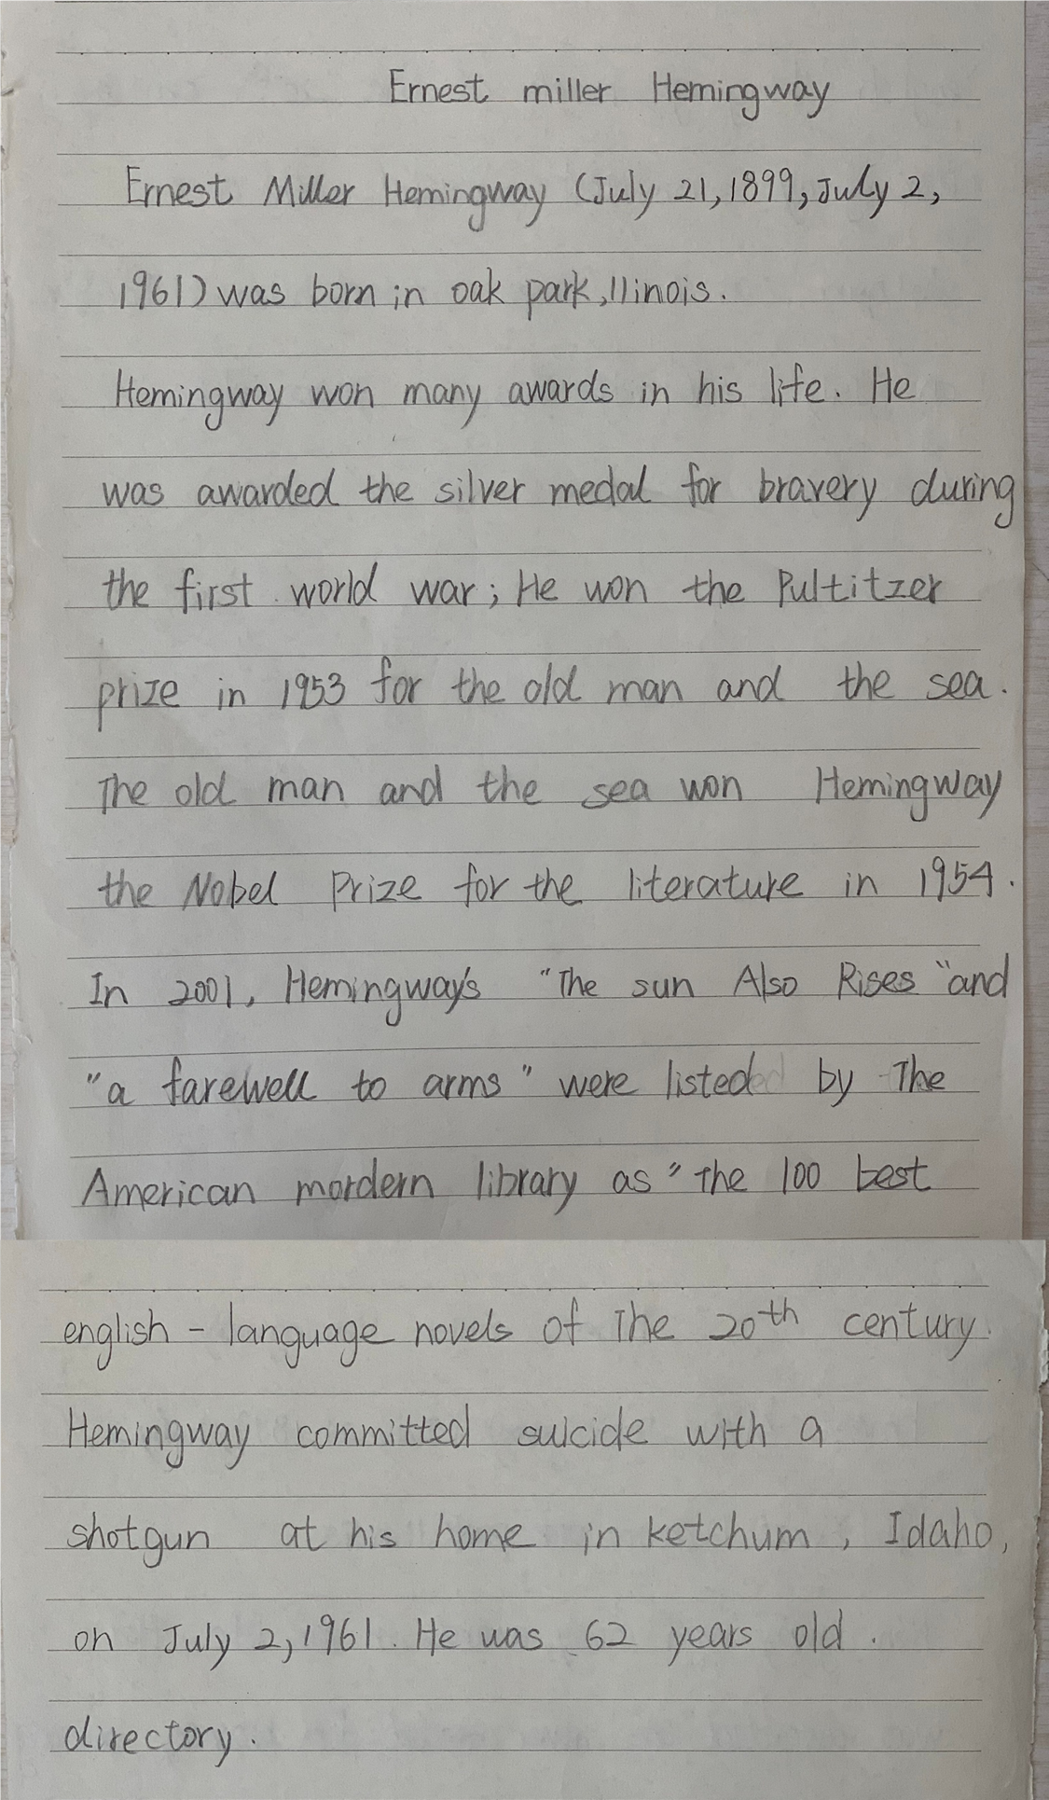 Ernest miller Hemingway
Ernest Miller Hemingway (July 21,1899, July 2,
1961) was born in oak park, llinois.
Hemingway won many awards in his life. He
was awarded the silver medal for bravery during
the first world war; He won the Pultitzer
prize in 1953 for the old man and the sea.
The old man and the sea won Hemingway
the Nobel Prize for the literature in 1954.
In 2001, Hemingway's "The sun Also Rises "and
"a farewell to arms" were listed by The
American mordern library as "the 100 best
english-language novels of The 20th century.
Hemingway committed suicide with a
shotgun at his home in ketchum, Idaho,
on July 2,1961. He was 62 years old.
directory.